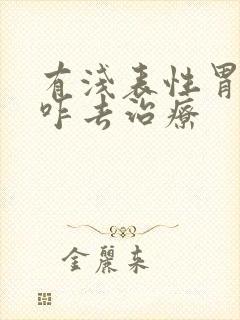 有浅表性胃
咋去治療
金麗來